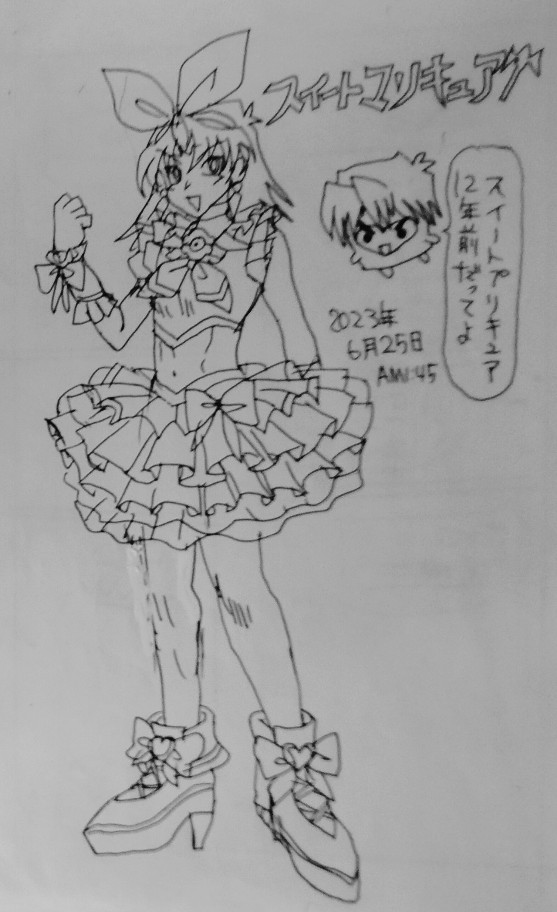 スイートプリキュア♪
スイートプリキュア
12年前だってよ
2023年
6月25日
AM1:45